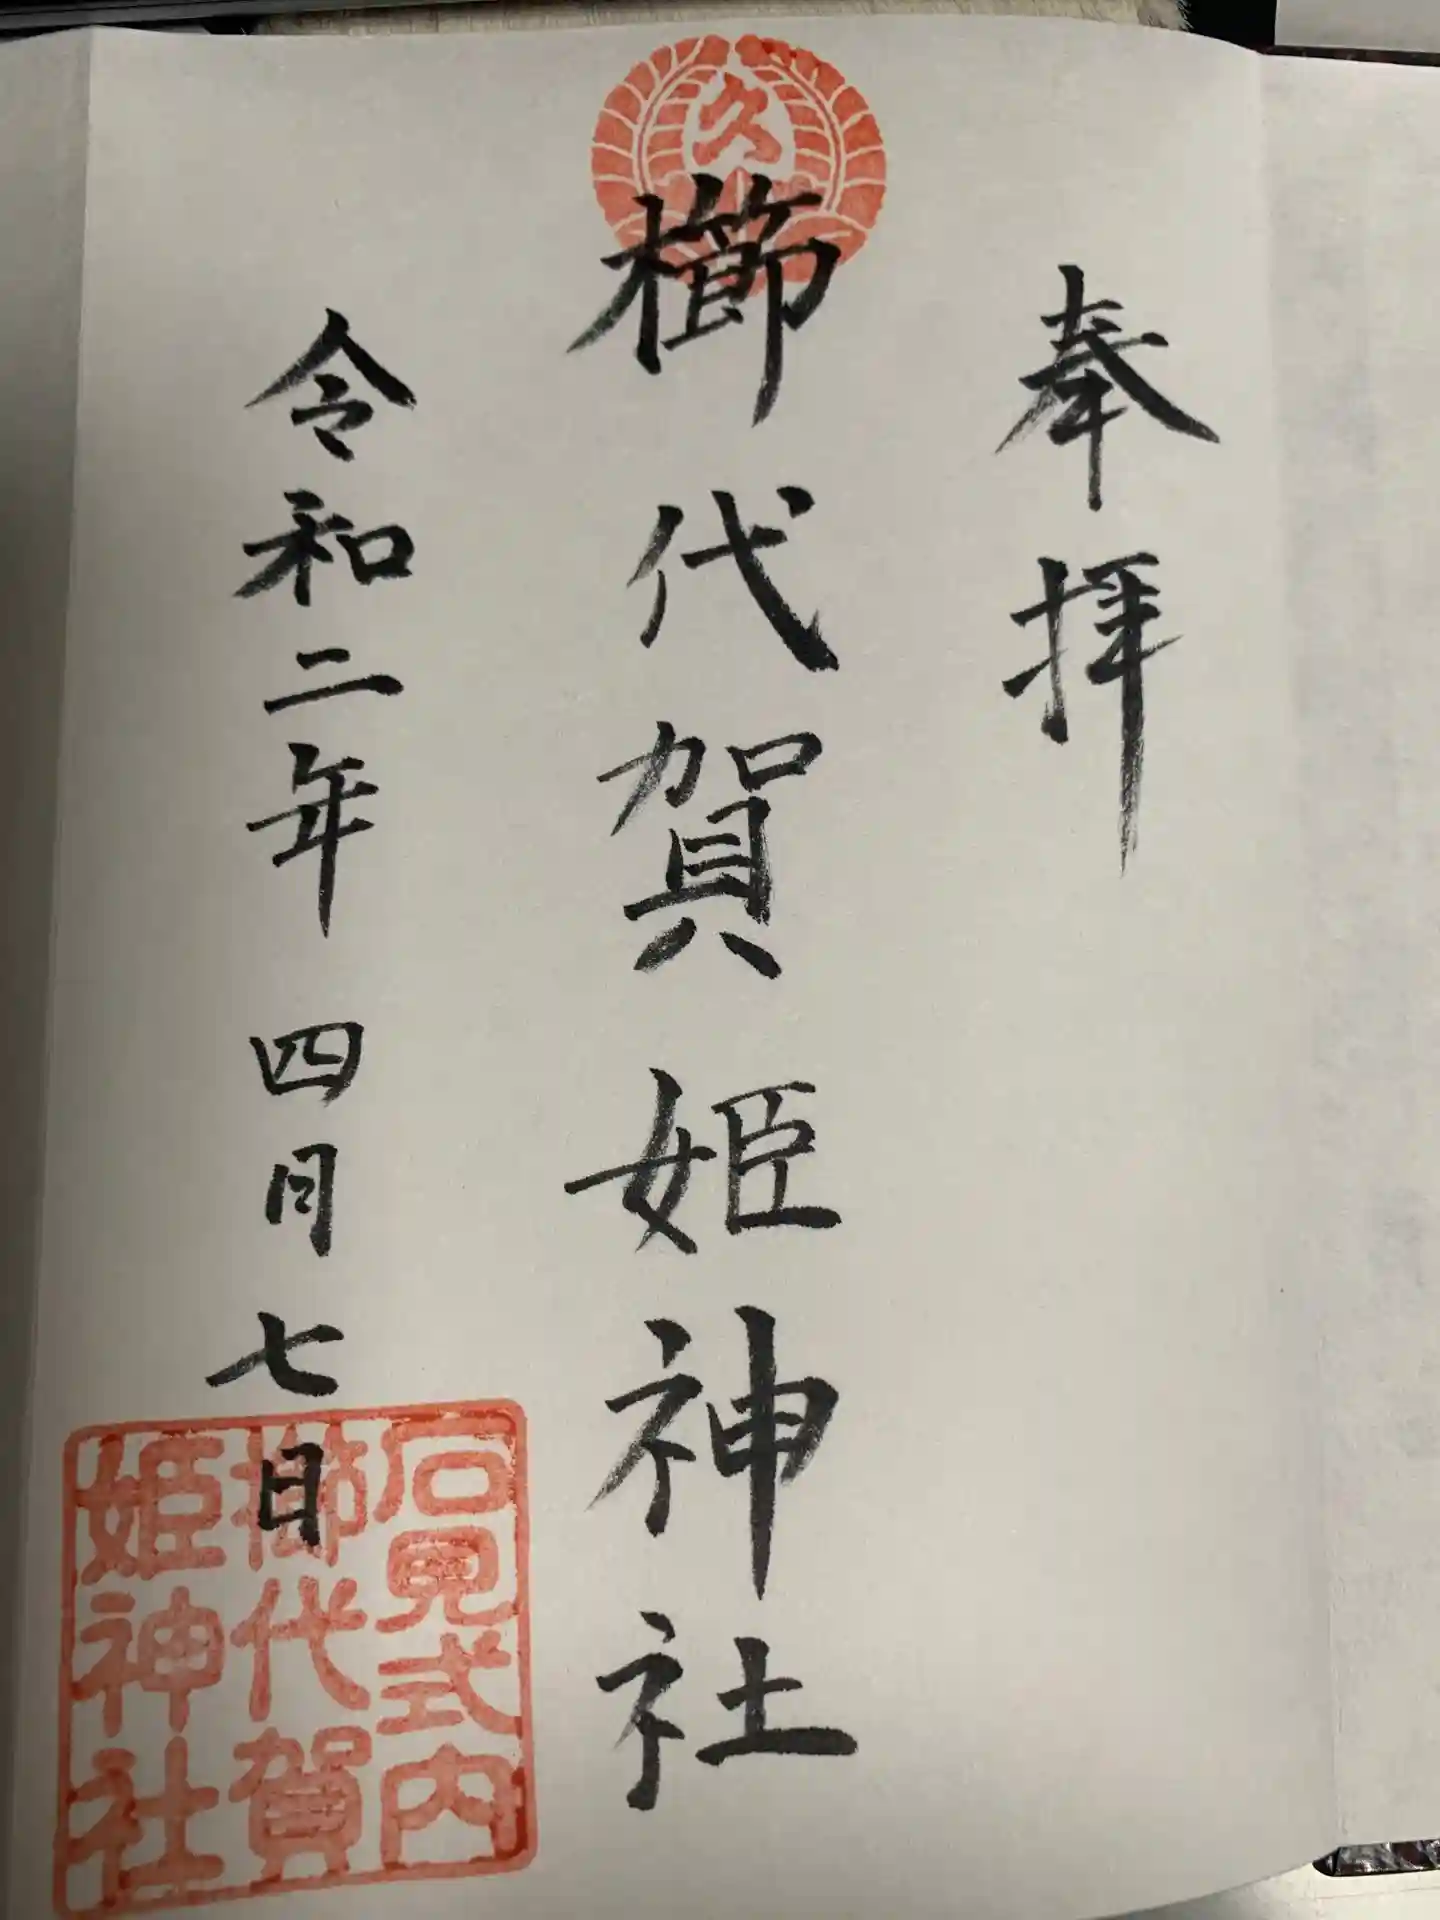 奉拝
久
櫛代賀姫神社
令和二年 四月七日
石見式内
櫛代賀
姫神社